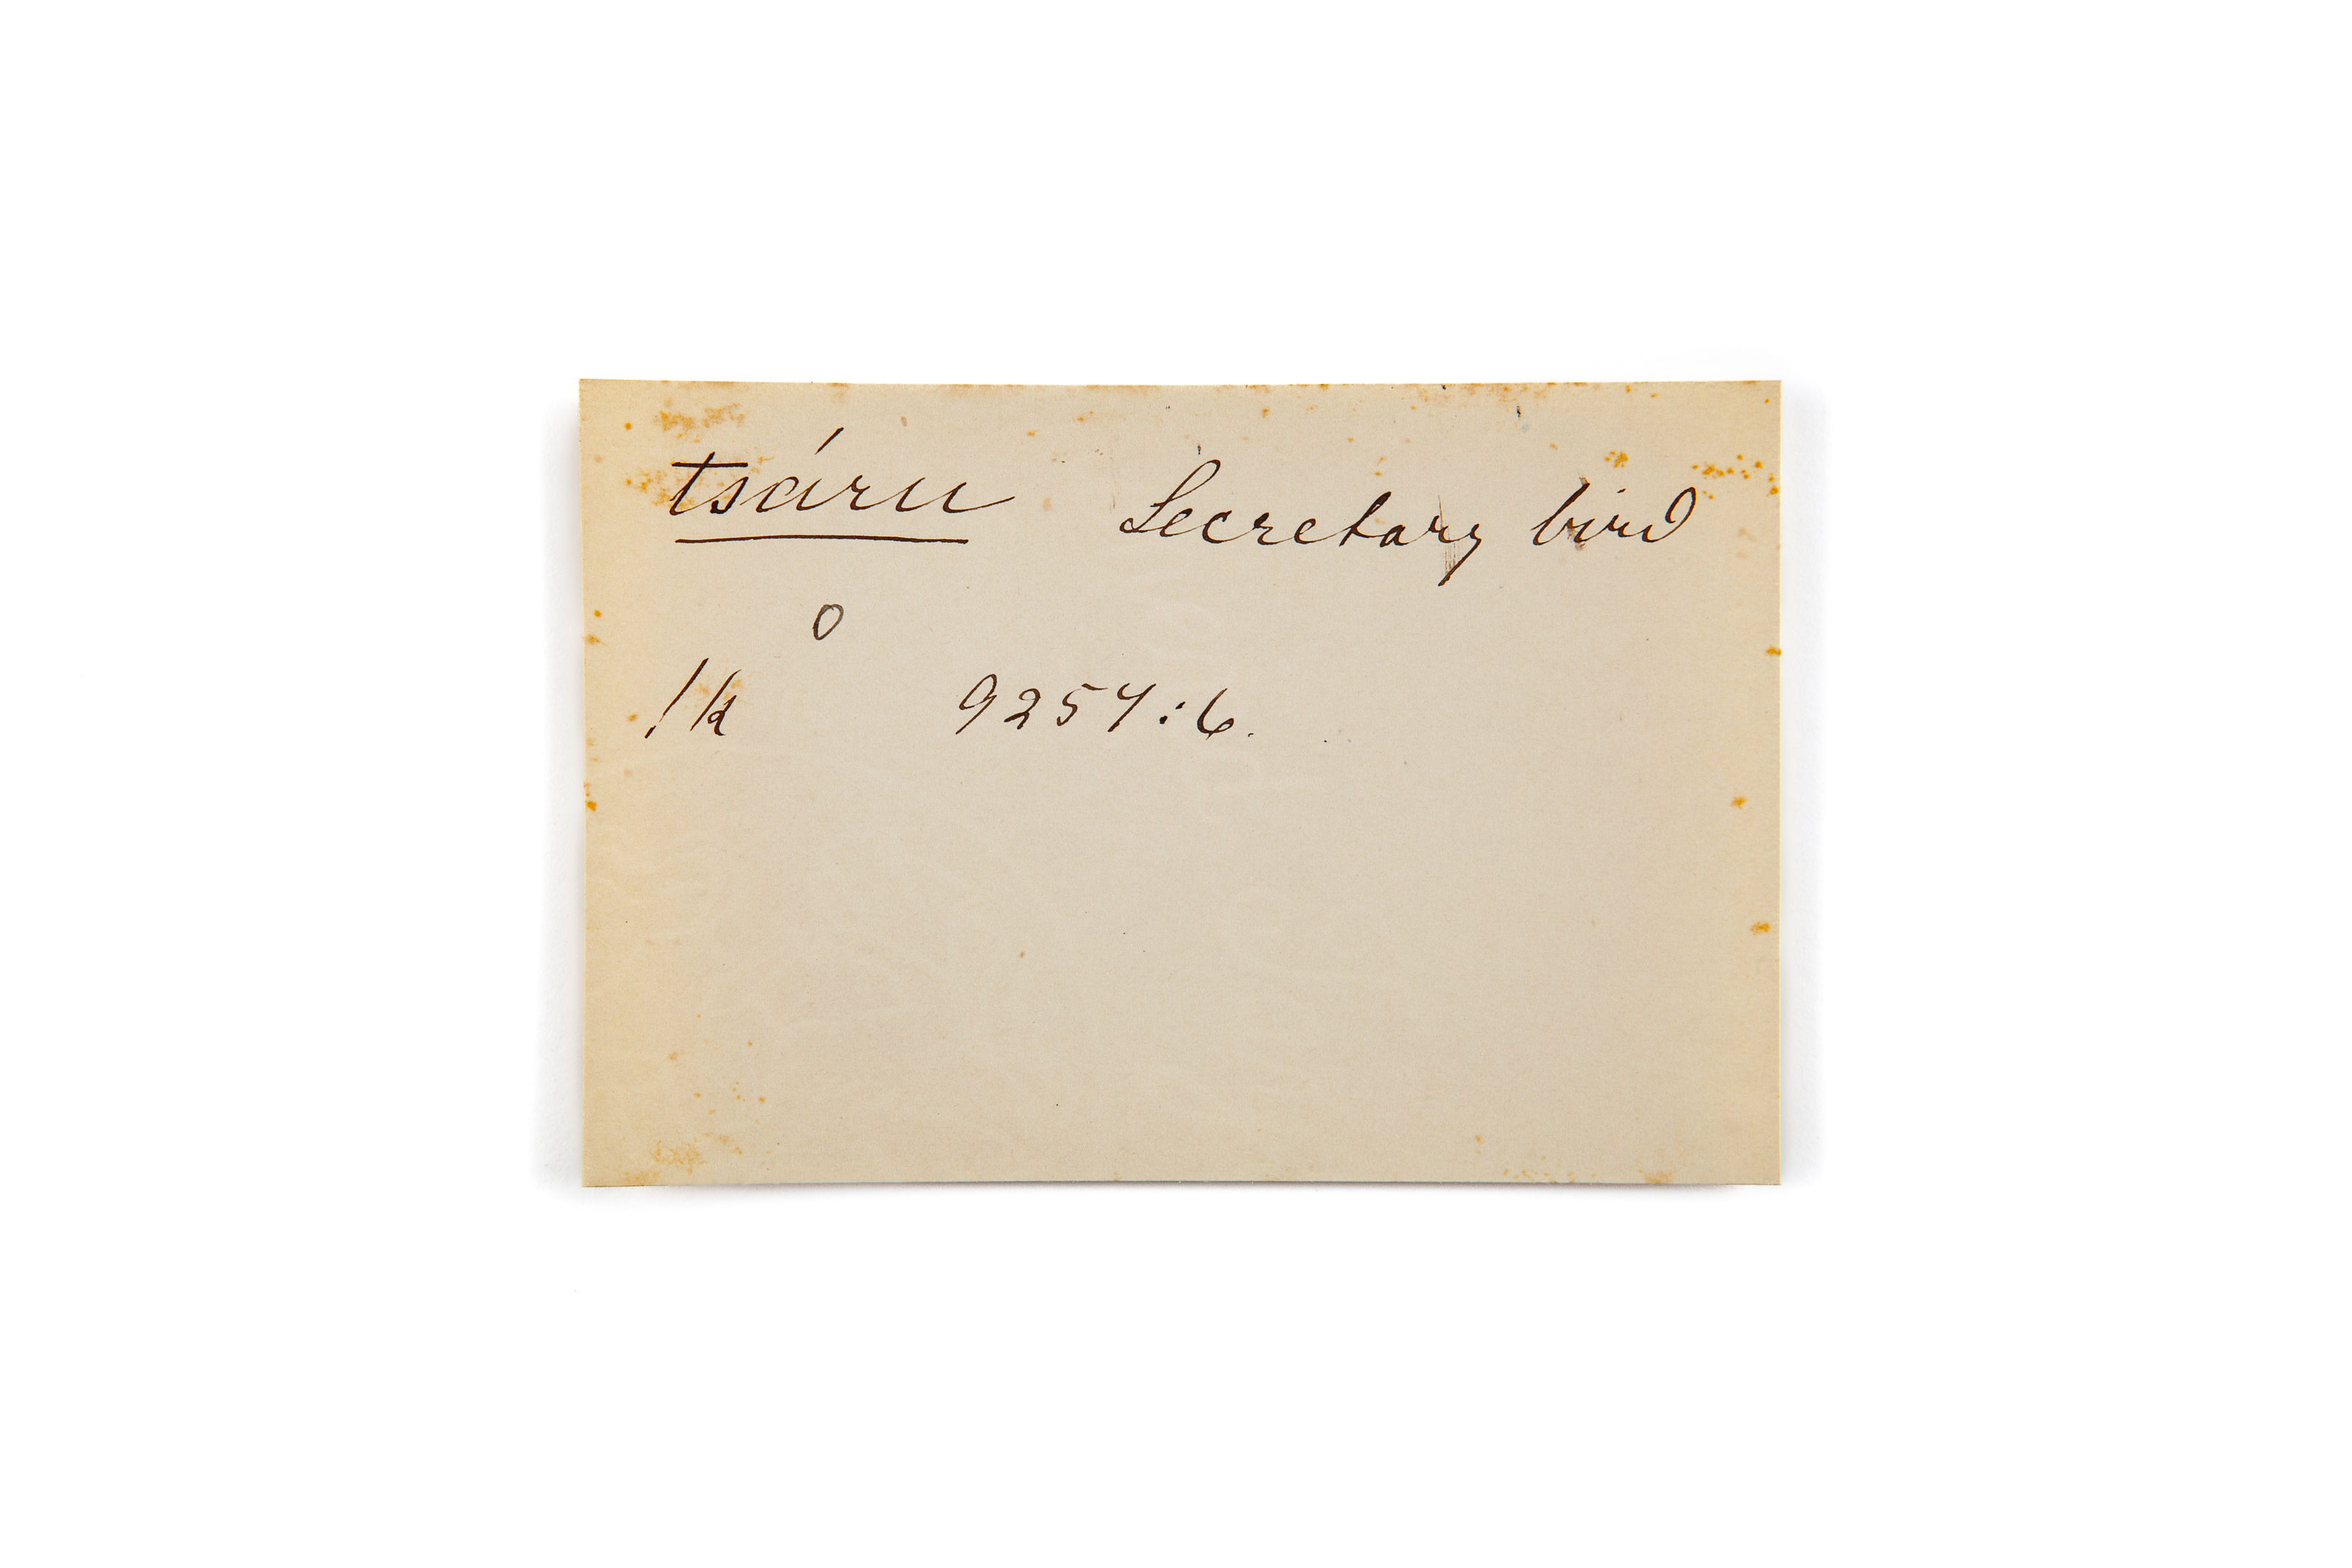 tsáru Secretary bird
o
/k 9257:6.